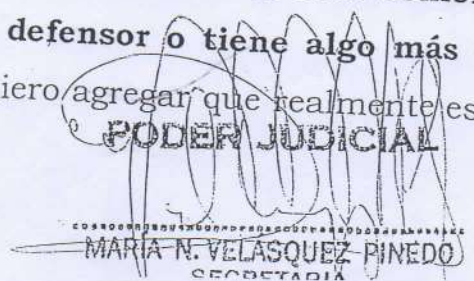 defensor o tiene algo más
iero agregar que realmente es
PODER JUDICIAL
MARIA N. VELASQUEZ PINEDO
SECRETARIA